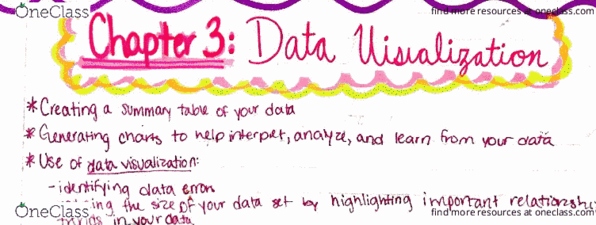 OneClass
find more resources at oneclass.com
Chapter 3: Data Visualization
* Creating a summary table of your data
* Generating charts to help interpret, analyze, and learn from your data
* Use of data visualization:
- identifying data errors
the size of your data set by highlighting important
OneClass
find more resources at oneclass.com
in your data